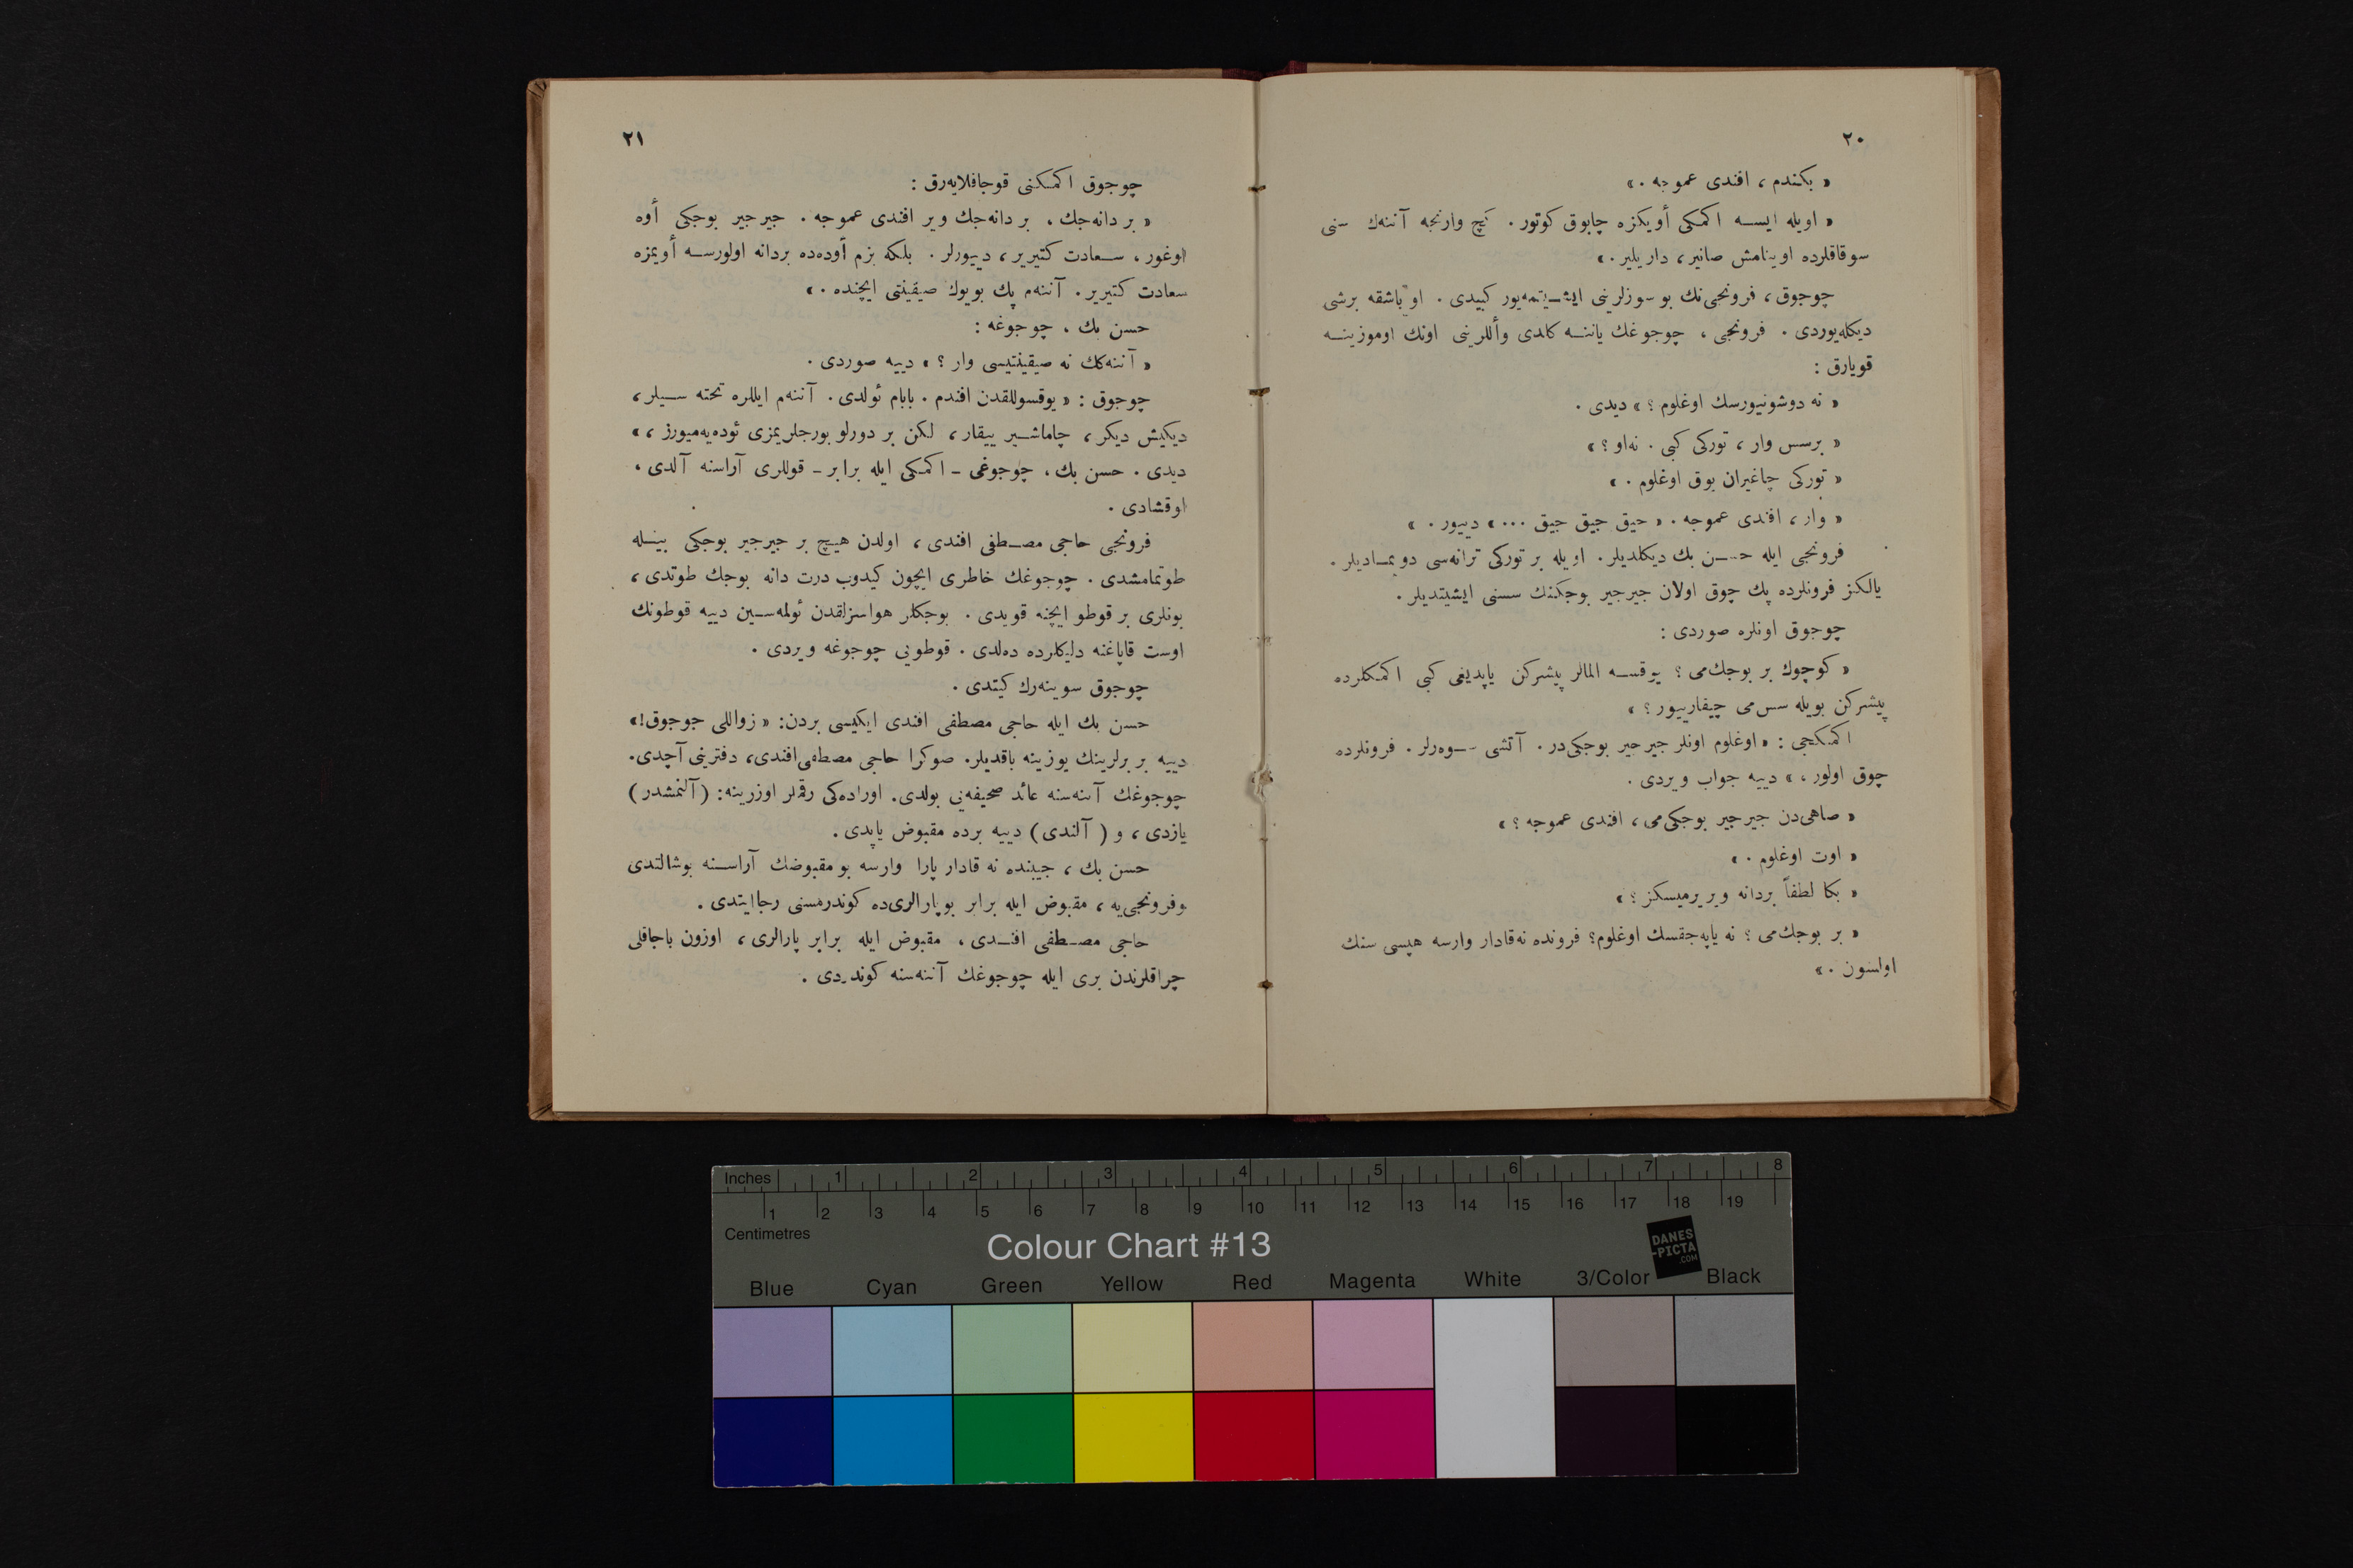 ٢٠
« بكندم ، افندی عموجه . »
« اويله ايسه اكمكی أويكزه چابوق كوتور . كچ وارنجه آننه‌ك سنی
سوقاقلرده اوينامش صانير ، داريلير . »
چوجوق ، فرونجی‌نك بو سوزلرينی ايشيتمه‌يور كبيدی . او باشقه برشی
ديكله‌يوردی . فرونجی ، چوجوغك ياننه كلدی وأللرينی اونك اوموزينه
قويارق :
« نه دوشونيورسك اوغلوم ؟ » ديدی .
« برسس وار ، توركی كبی . نه‌او ؟ »
« توركی چاغيران يوق اوغلوم . »
« وار ، افندی عموجه . « جيق جيق جيق ... » دييور . »
فرونجی ايله حسن بك ديكلديلر . اويله بر توركی ترانه‌سی دويمـاديلر .
يالكز فرونلرده پك چوق اولان جيرجير بوجكنك سسنی ايشيتديلر .
چوجوق اونلره صوردی :
« كوچوك بر بوجك‌می ؟ يوقسه المالر پيشركن ياپديغی كبی اكمكلرده
پيشركن بويله سس‌می چيقارييور ؟ »
اكمكجی : « اوغلوم اونلر جيرجير بوجكی‌در . آتشی سوه‌رلر . فرونلرده
چوق اولور ، » دييه جواب ويردی .
« صاهی‌دن جيرجير بوجكی‌می ، افندی عموجه ؟ »
« اوت اوغلوم . »
« بكا لطفاً بردانه ويريرميسكز ؟ »
« بر بوجك‌می ؟ نه ياپه‌جقسك اوغلوم؟ فرونده نه‌قادار وارسه هپسی سنك
اولسون . »
٢١
چوجوق اكمكنی قوجاقلايه‌رق :
« بر دانه‌جك ، بر دانه‌جك وير افندی عموجه . جيرجير بوجكی أوه
اوغور ، سعادت كتيرير ، دييورلر . بلكه بزم أوده‌ده بردانه اولورسه أويمزه
سعادت كتيرير . آننه‌م پك بويوك صيقينتی ايچنده . »
حسن بك ، چوجوغه :
« آننه‌كك نه صيقينتيسی وار ؟ » دييه صوردی .
چوجوق : « يوقسوللقدن افندم . بابام ئولدی . آننه‌م ايللره تخته سيلر ،
ديكيش ديكر ، چاماشير ييقار ، لكن بر دورلو بورجلريمزی ئوده‌يه‌ميورز ، »
ديدی . حسن بك ، چوجوغی ـ اكمكی ايله برابر ـ قوللری آراسنه آلدی ،
اوقشادی .
فرونجی حاجی مصطفی افندی ، اولدن هيچ بر جيرجير بوجكی بيـله
طوتمامشدی . چوجوغك خاطری ايچون كيدوب درت دانه بوجك طوتدی ،
بونلری بر قوطو ايچنه قويدی . بوجكلر هواسزلقدن ئولمه‌سين دييه قوطونك
اوست قاپاغنه دليكلرده ده‌لدی . قوطويی چوجوغه ويردی .
چوجوق سوينه‌رك كيتدی .
حسن بك ايله حاجی مصطفی افندی ايكيسی بردن: « زواللی چوجوق! »
دييه بر برلرينك يوزينه باقديلر. صوكرا حاجی مصطفی‌افندی، دفترينی آچدی.
چوجوغك آننه‌سنه عائد صحيفه‌يی بولدی. اوراده‌كی رقملر اوزرينه: (آلنمشدر)
يازدی ، و ( آلندی ) دييه برده مقبوض ياپدی .
حسن بك ، جيبنده نه قادار پارا وارسه بو مقبوضك آراسنه بوشالتدی
وفرونجی‌يه ، مقبوض ايله برابر بو پارالری‌ده كوندرمسنی رجاايتدی .
حاجی مصطفی افندی ، مقبوض ايله برابر پارالری ، اوزون باجاقلی
چراقلرندن بری ايله چوجوغك آننه‌سنه كوندردی .
Inches 1 2 3 4 5 6 7 8
1 2 3 4 5 6 7 8 9 10 11 12 13 14 15 16 17 18 19
Centimetres
Colour Chart #13
DANES
-PICTA
.COM
Blue Cyan Green Yellow Red Magenta White 3/Color Black